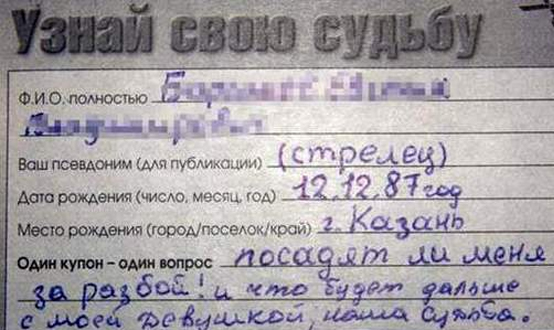 Узнай свою судьбу
Ф.И.О. полностью
Ваш псевдоним (для публикации) (стрелец)
Дата рождения (число, месяц, год) 12.12.87 год
Место рождения (город/поселок/край) г. Казань
Один купон – один вопрос посадят ли меня
за разбой! и что будет дальше
с моей девушкой, наша судьба.